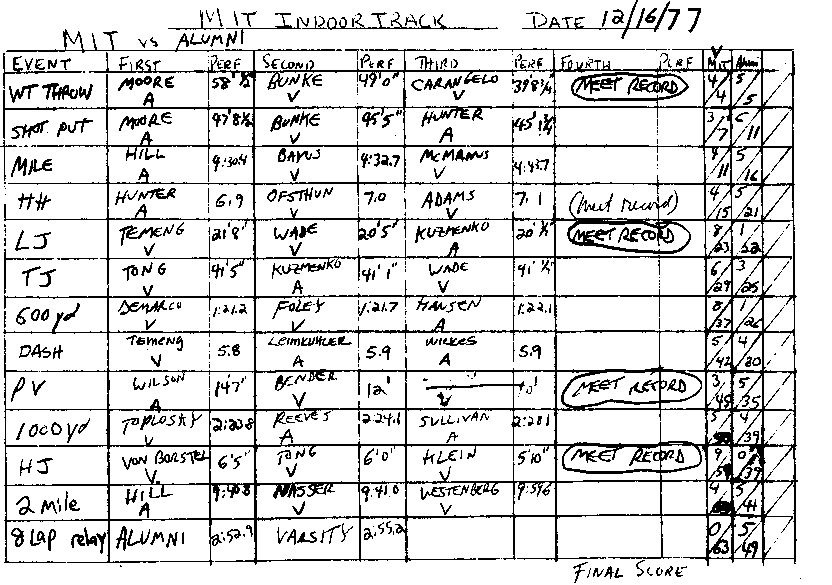 MIT INDOOR TRACK DATE 12/16/77
MIT vs ALUMNI
EVENT FIRST PERF SECOND PERF THIRD PERF FOURTH PERF MIT Alum
V
WT THROW MOORE A 58'½" BUNKE V 49'0" CARANGELO V 39'8¼" MEET RECORD 4/4 5/5
SHOT PUT MOORE A 47'8½" BUNKE V 45'5" HUNTER A 45'1¾" 3/7 6/11
MILE HILL A 4:30.4 BAYUS V 4:32.7 MCMANUS V 4:43.7 4/11 5/16
HH HUNTER A 6.9 OFSTHUN V 7.0 ADAMS V 7.1 (meet record) 4/15 5/21
LJ TEMENG V 21'8" WADE V 20'5" KUZMENKO A 20'½" MEET RECORD 8/23 1/22
TJ TONG V 41'5" KUZMENKO A 41'1" WADE V 41'½" 6/29 3/25
600 yd DEMARCO V 1:21.2 FOLEY V 1:21.7 HANSEN A 1:22.1 8/37 1/26
DASH TEMENG V 5.8 LEIMKUHLER A 5.9 WILKES A 5.9 5/42 4/30
PV WILSON A 14'7" BENDER V 12' V MEET RECORD 3/45 5/35
1000 yd TOPLOSKY V 2:23.8 REEVES A 2:24.1 SULLIVAN A 2:28.1 5/50 4/39
HJ VON BORSTEL V 6'5" TONG V 6'0" KLEIN V 5'10" MEET RECORD 9/59 0/39
2 Mile HILL A 9:40.8 NASSER V 9:41.0 WESTENBERG V 9:59.6 4 5/41
8 Lap relay ALUMNI 2:52.9 VARSITY 2:55.2 0/63 5/49
FINAL SCORE